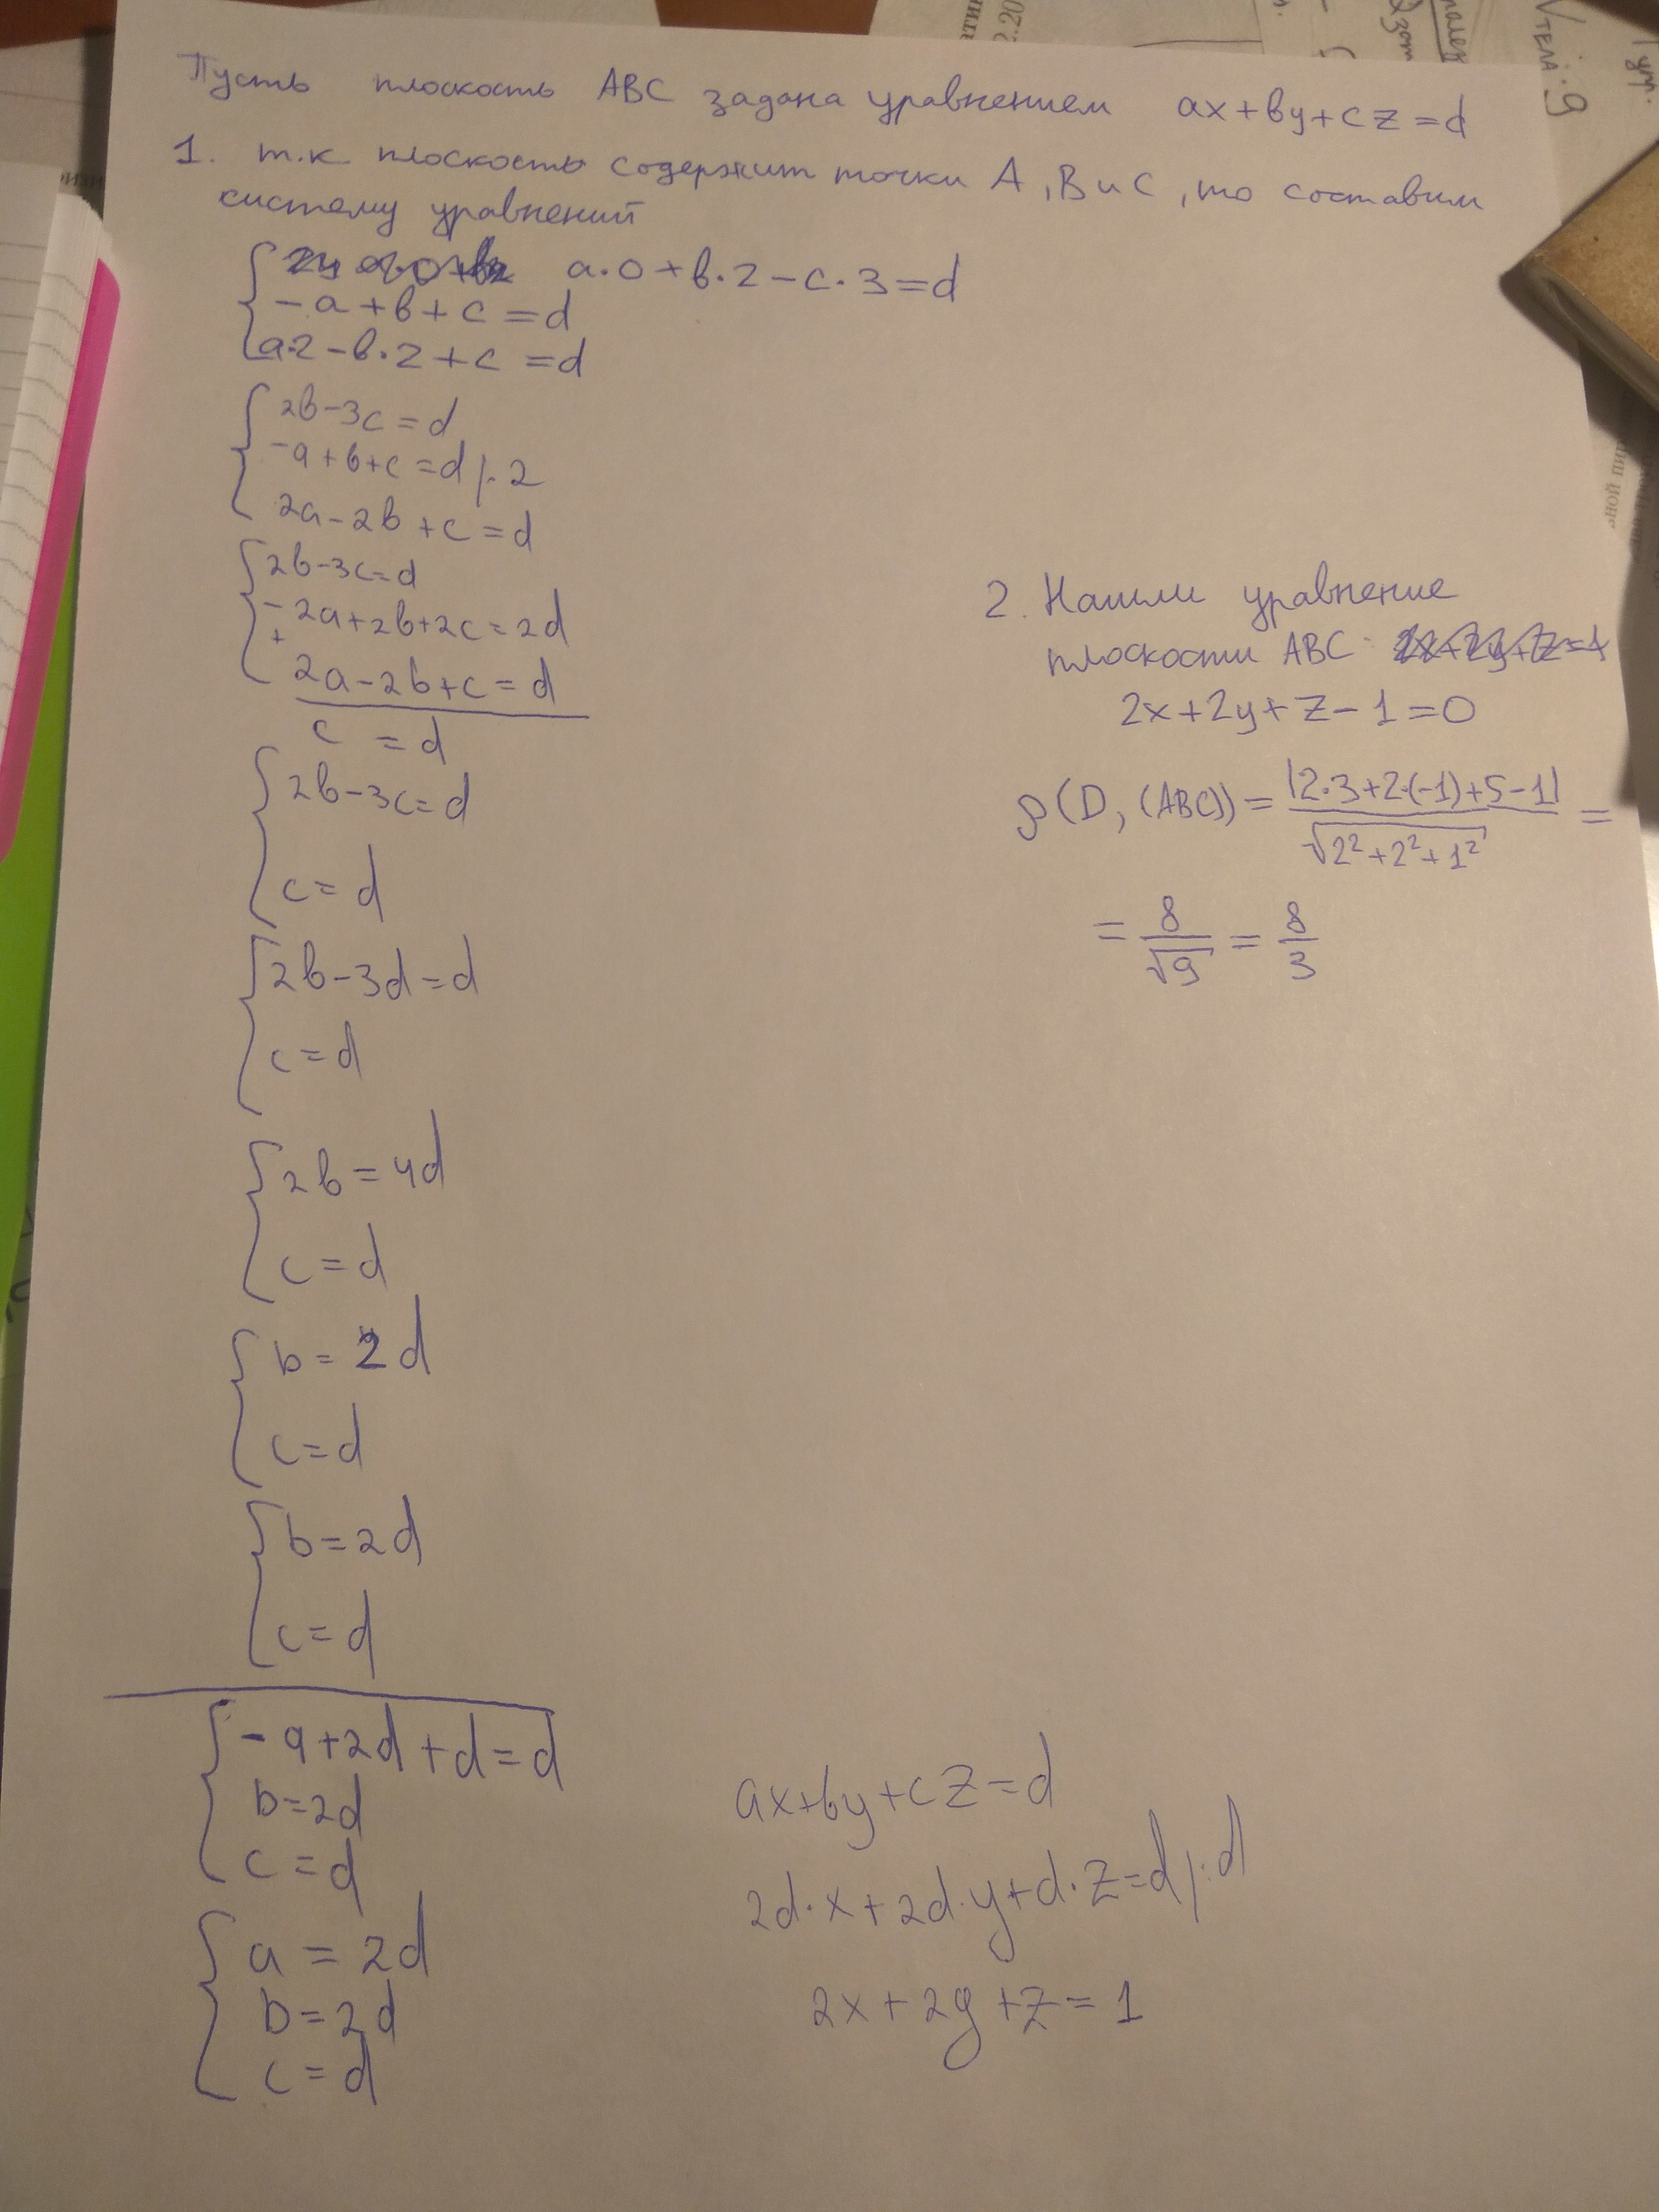 Пусть плоскость ABC задана уравнением ax+by+cz=d
1. т.к. плоскость содержит точки A, B и C, то составим
систему уравнений
a·0+b·2-c·3=d
-a+b+c=d
a·2-b·2+c=d
2b-3c=d
-a+b+c=d |·2
2a-2b+c=d
2b-3c=d
-2a+2b+2c=2d
+
2a-2b+c=d
c=d
2b-3c=d
c=d
2b-3d=d
c=d
2b=4d
c=d
b=2d
c=d
b=2d
c=d
-a+2d+d=d
b=2d
c=d
a=2d
b=2d
c=d
ax+by+cz=d
2d·x+2d·y+d·z=d |:d
2x+2y+z=1
2. Нашли уравнение
плоскости ABC: 2x+2y+z=1
2x+2y+z-1=0
ρ(D, (ABC)) = |2·3+2·(-1)+5-1| =
√2²+2²+1²
= 8 = 8
√9 3
атик
2.20
Vтела
:9